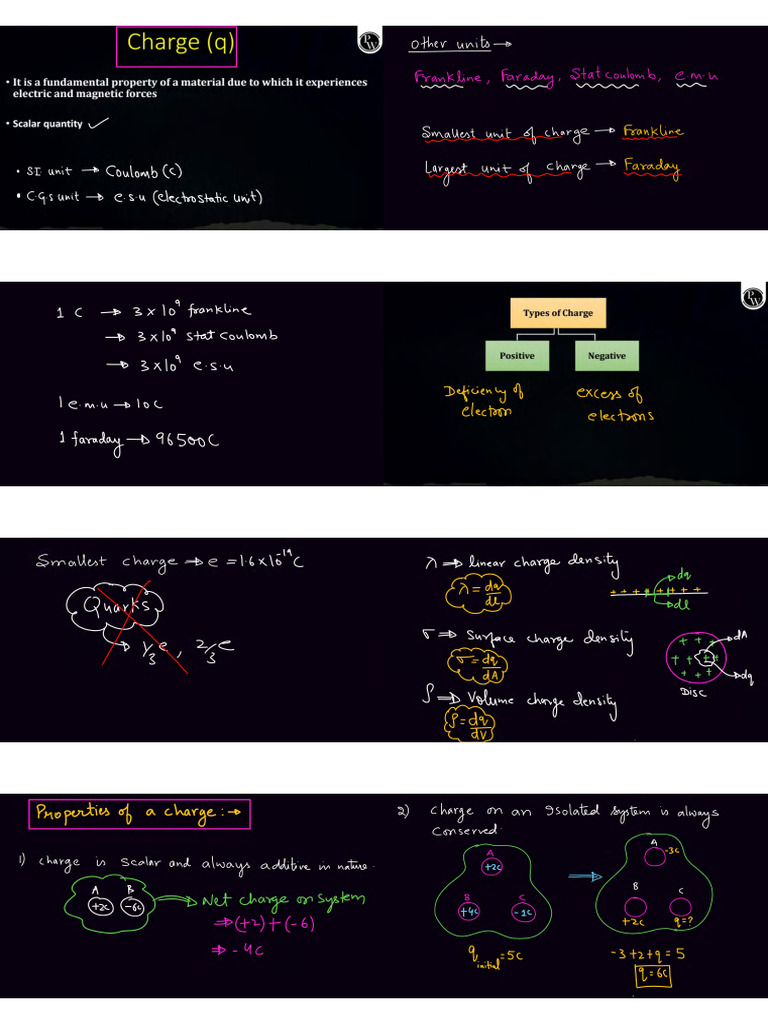 Charge (q)
PW
• It is a fundamental property of a material due to which it experiences
electric and magnetic forces
• Scalar quantity ✓
• SI unit → Coulomb (C)
• C.G.S unit → e.s.u (electrostatic unit)
Other units →
Frankline, Faraday, Stat coulomb, e.m.u
Smallest unit of charge → Frankline
Largest unit of charge → Faraday
1 C → 3 × 10⁹ frankline
→ 3 × 10⁹ stat coulomb
→ 3 × 10⁹ e.s.u
1 e.m.u → 10 C
1 faraday → 96500 C
PW
Types of Charge
Positive
Negative
Deficiency of
electron
excess of
electrons
Smallest charge → e = 1.6 × 10⁻¹⁹ C
Quarks
→ 1/3 e, 2/3 e
λ ⇒ linear charge density
λ = dq/dl
+ + + + + + + +
dq
dl
σ ⇒ Surface charge density
σ = dq/dA
dA
dq
Disc
ρ ⇒ Volume charge density
ρ = dq/dV
Properties of a charge :→
1) charge is scalar and always additive in nature.
A B
+2c -6c
Net charge on system
⇒ (+2) + (-6)
⇒ -4c
2) Charge on an Isolated system is always
conserved.
A
+2c
B
+4c
C
-1c
q initial = 5c
A
-3c
B
+2c
C
q=?
-3+2+q = 5
q=6c